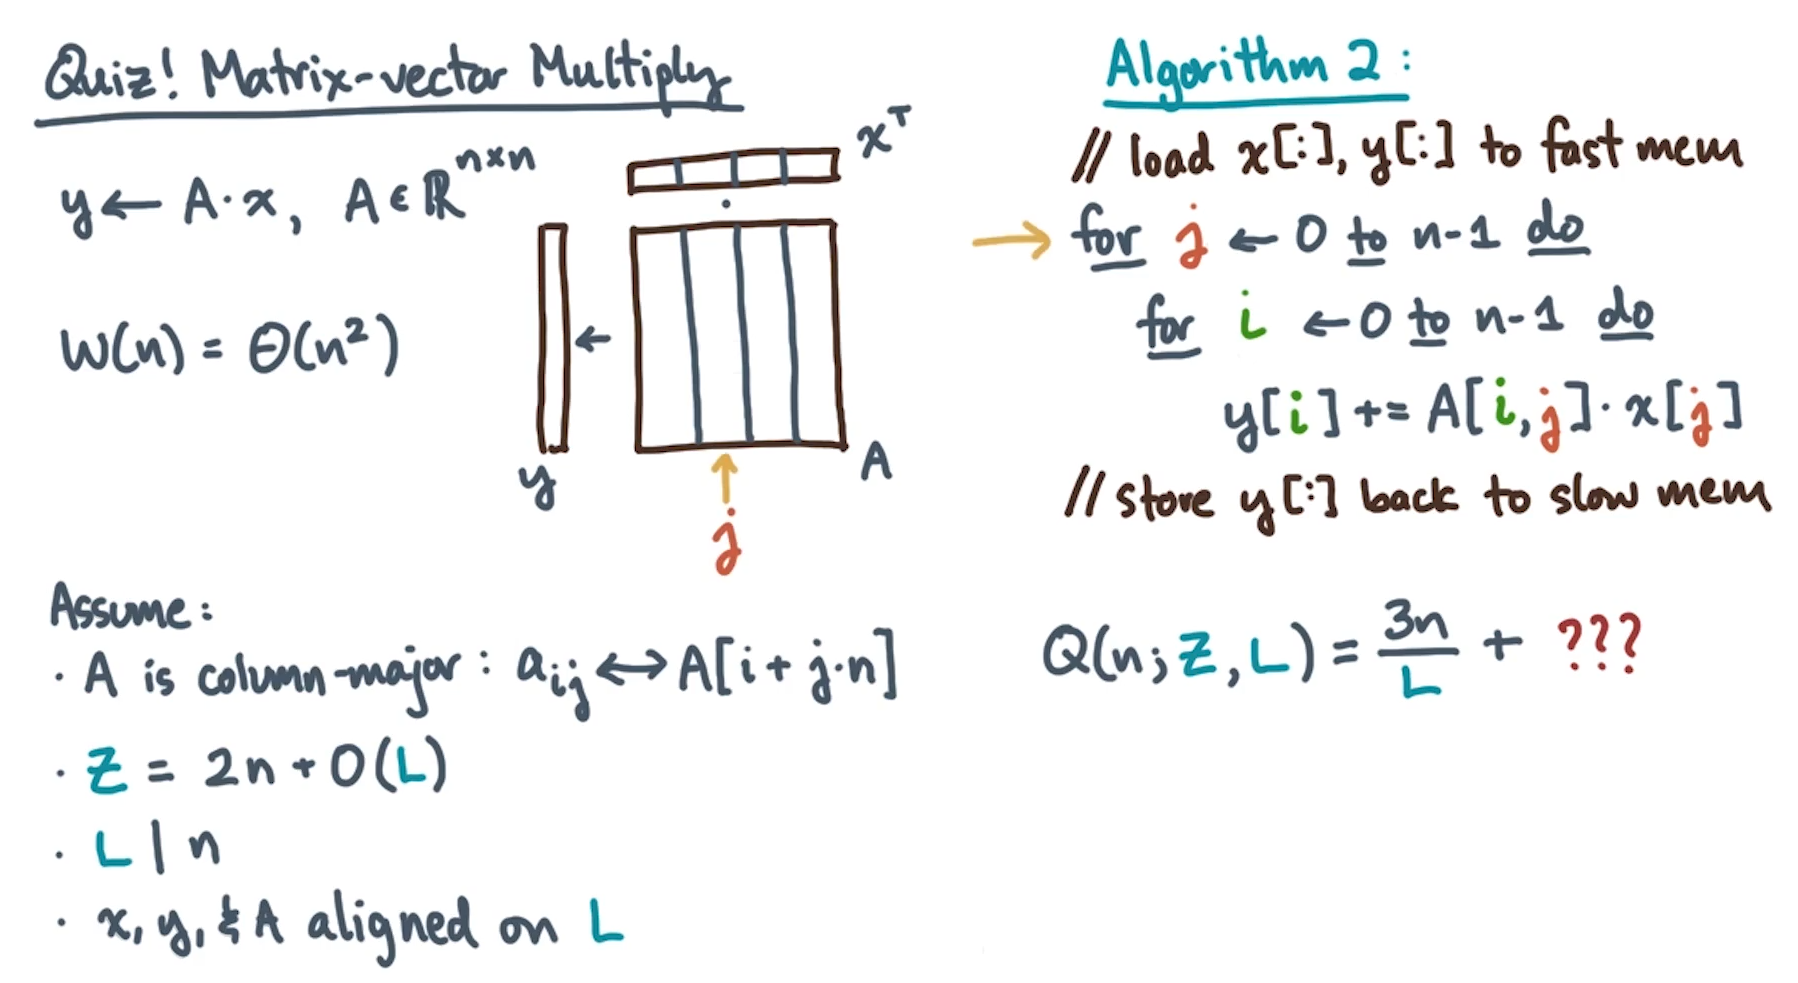 Quiz! Matrix-vector Multiply
y ← A·x, A ∈ ℝ^{n×n}
W(n) = Θ(n²)
x^T
y
A
j
Assume:
· A is column-major : a_{ij} ↔ A[i + j·n]
· Z = 2n + O(L)
· L | n
· x, y, & A aligned on L
Algorithm 2:
// load x[:], y[:] to fast mem
→ for j ← 0 to n-1 do
for i ← 0 to n-1 do
y[i] += A[i,j]·x[j]
// store y[:] back to slow mem
Q(n; Z, L) = 3n/L + ???